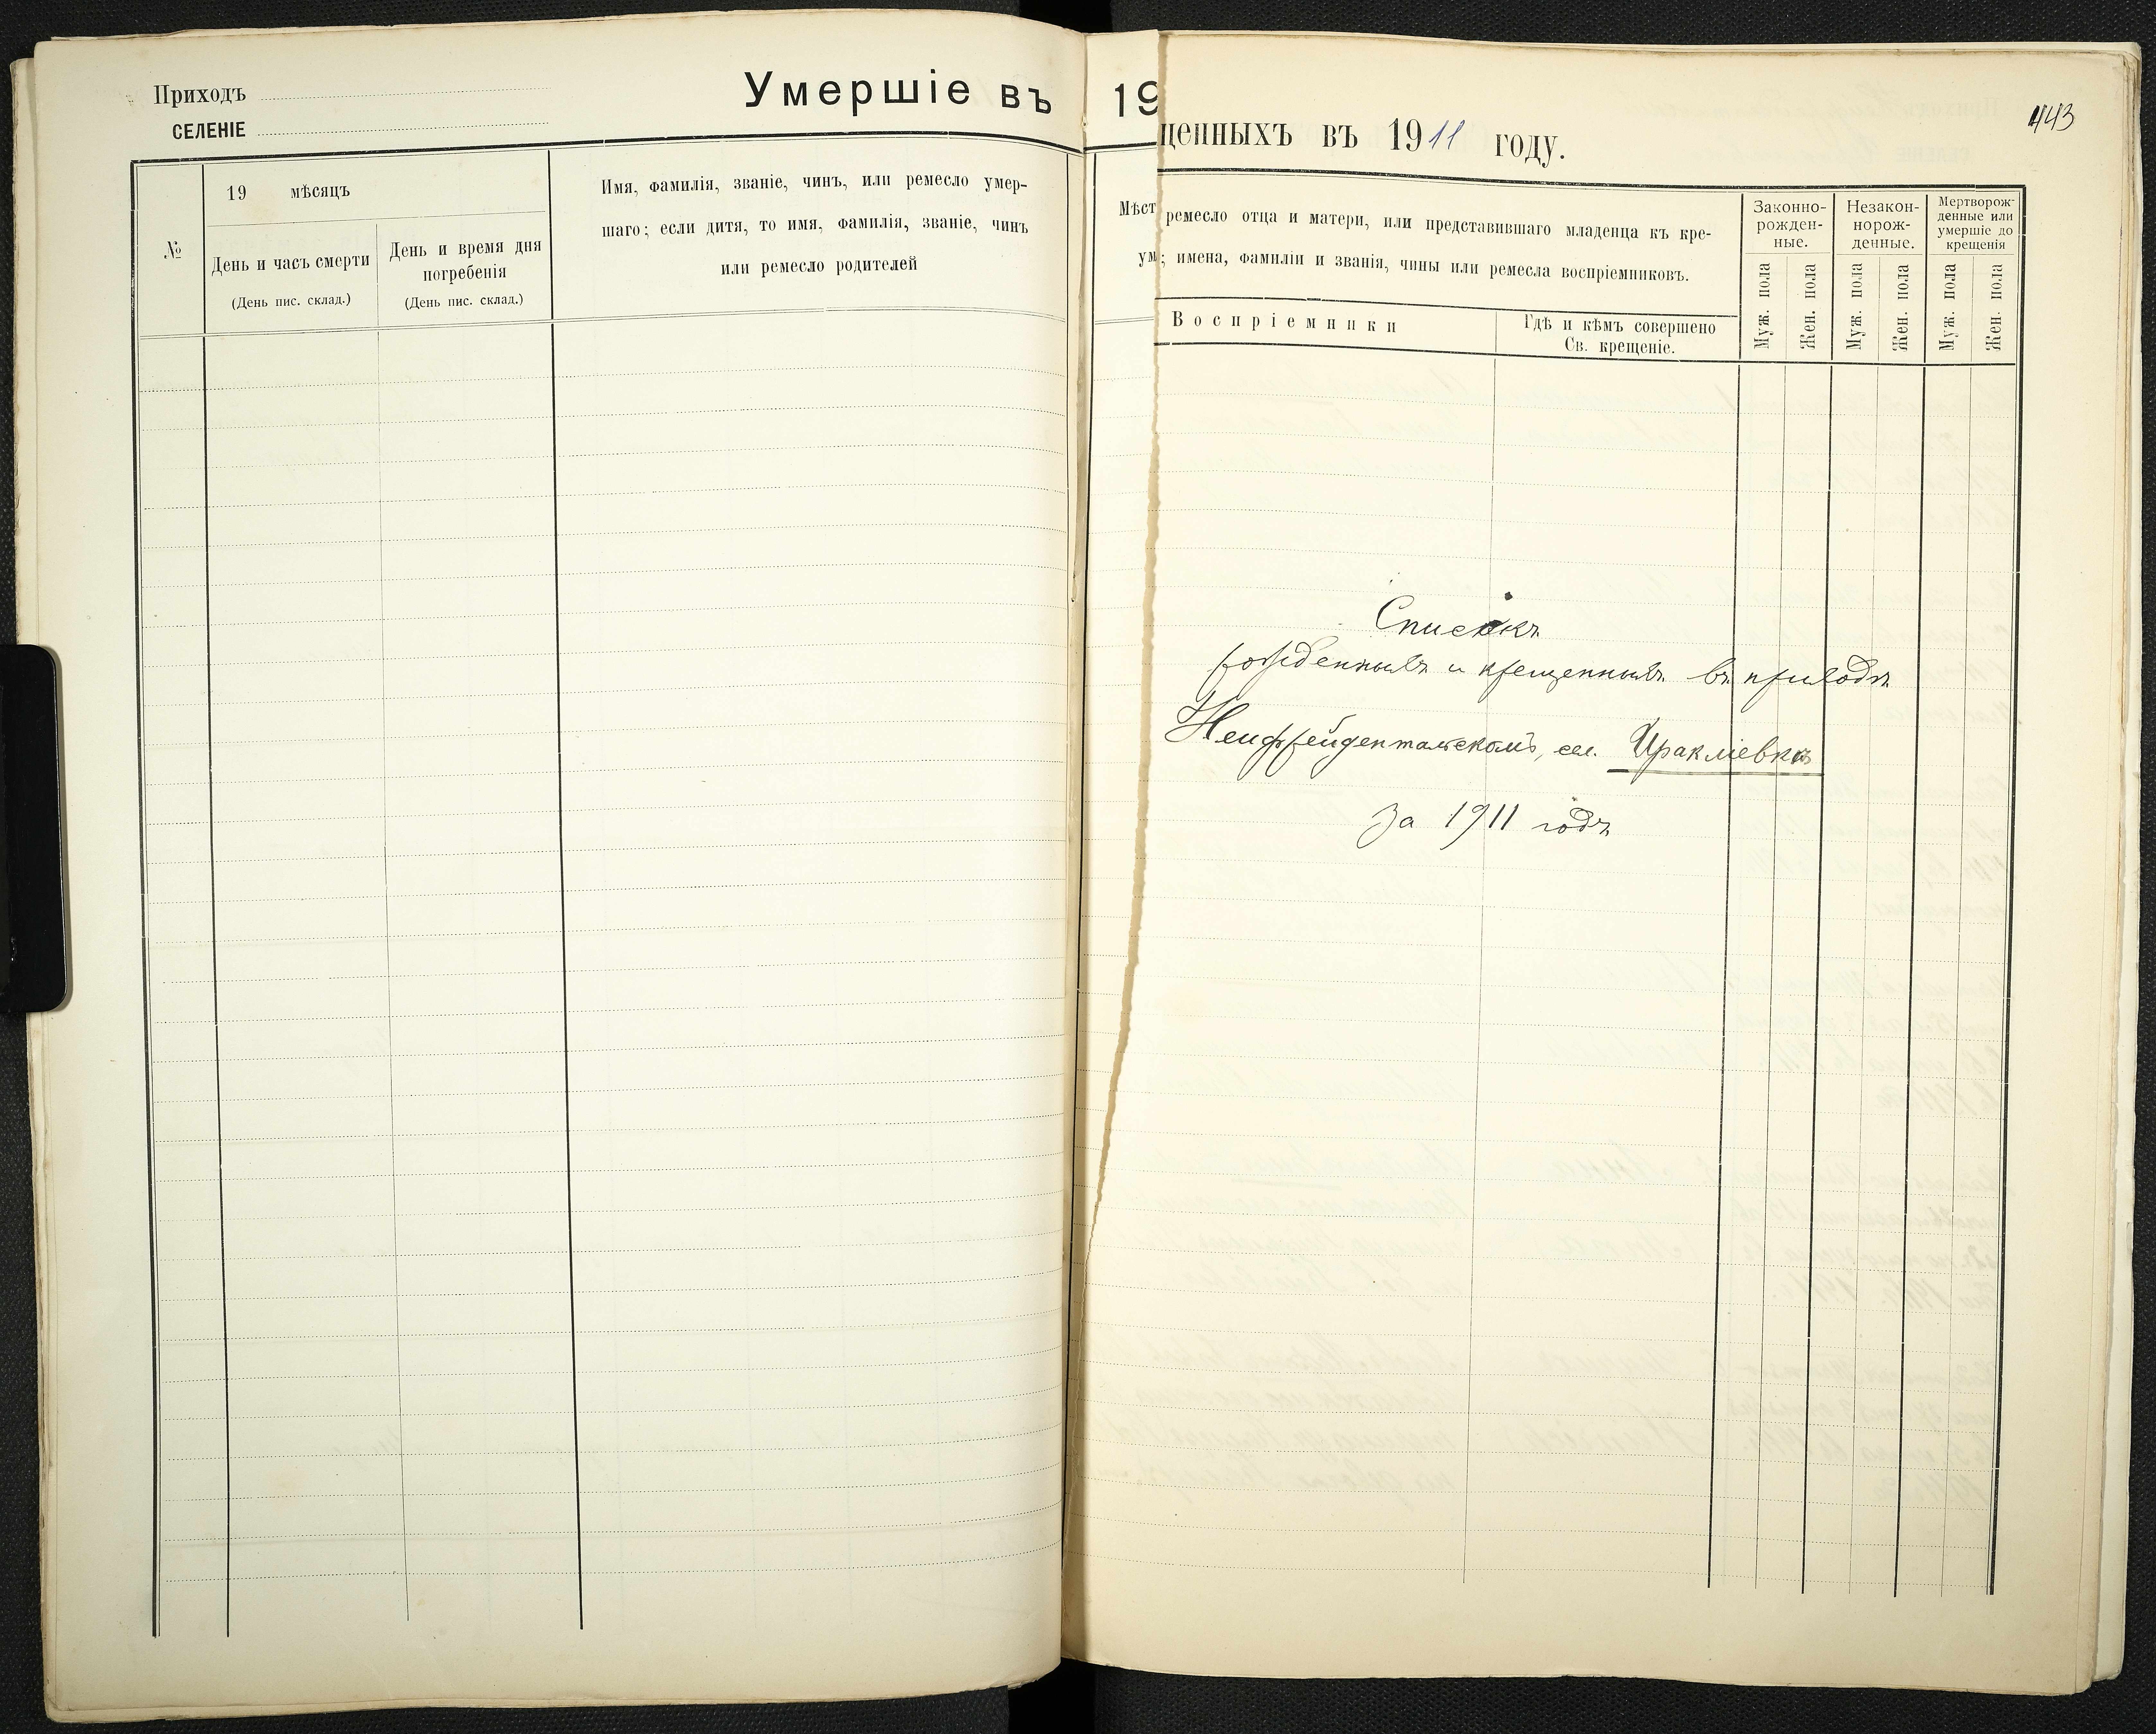 Приходъ
СЕЛЕНІЕ
Умершіе въ 19
№
19 мѣсяцъ
День и часъ смерти
(День пис. склад.)
День и время дня
погребенія
(День пис. склад.)
Имя, фамилія, званіе, чинъ, или ремесло умер-
шаго; если дитя, то имя, фамилія, званіе, чинъ
или ремесло родителей
Мѣст
ум
443
щенныхъ въ 1911 году.
ремесло отца и матери, или представившаго младенца къ кре-
; имена, фамиліи и званія, чины или ремесла воспріемниковъ.
Воспріемники
Гдѣ и кѣмъ совершено
Св. крещеніе.
Законно-
рожден-
ные.
Незакон-
норож-
денные.
Мертворож-
денные или
умершіе до
крещенія
Муж. пола
Жен. пола
Муж. пола
Жен. пола
Муж. пола
Жен. пола
Списокъ
рожденныхъ и крещенныхъ въ приходѣ
Неифрейдентальскомъ, сел. Иракліевкѣ
за 1911 годъ